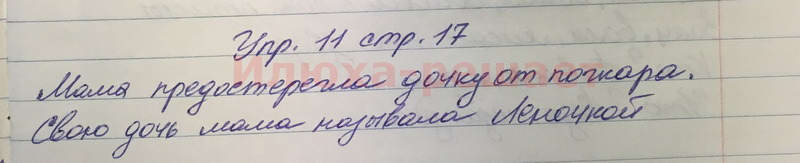 Упр. 11 стр. 17
Мама предостерегла дочку от пожара.
Свою дочь мама называла Леночкой